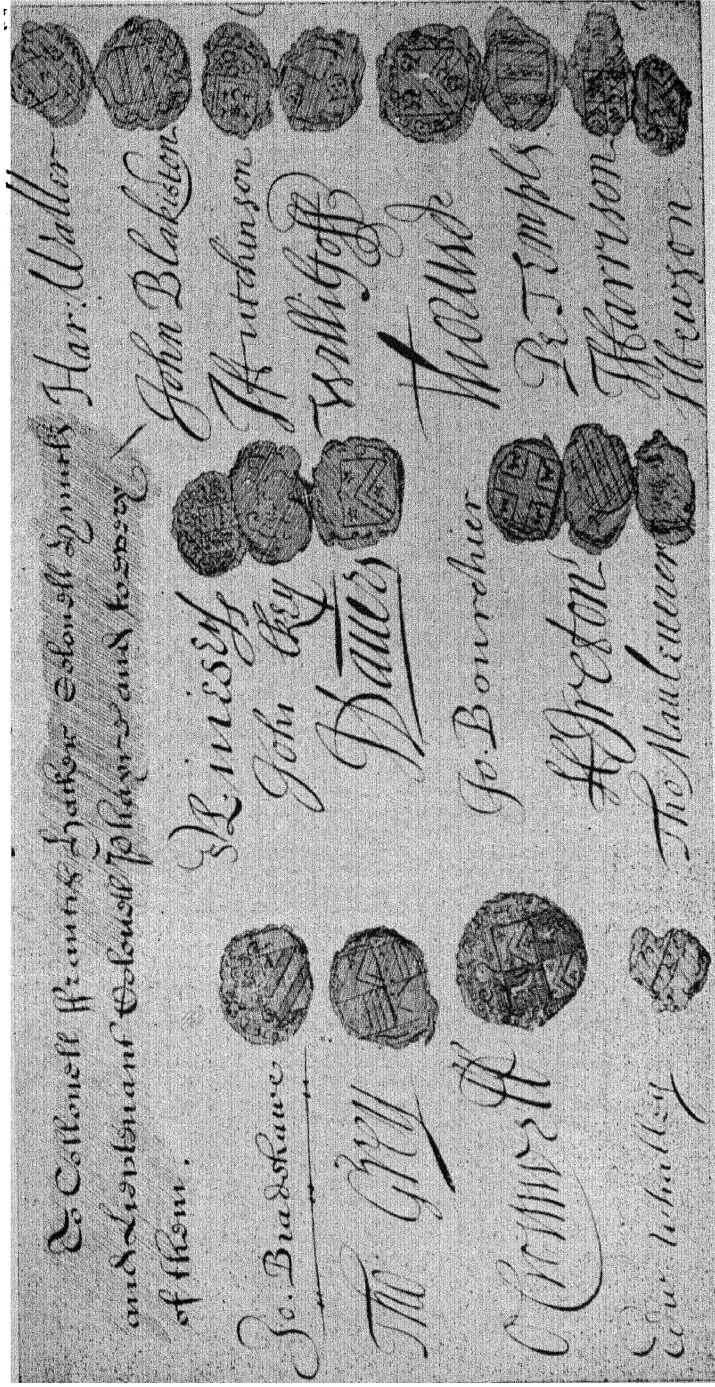 To Collonell ffrancis Hacker Colonell Huncks
and Lieutenant Colonell Phayre and to every
of them.
Jo. Bradshawe
Tho Grey
O Cromwell
Edw. Whalley
M. Livesey
John Okey
J Dauers
Jo. Bourchier
H Ireton
Tho Mauleuerer
Har: Waller
John Blakiston
J Hutchinson
Willi Goff
Tho Pride
Pe Temple
T Harrison
J Hewson